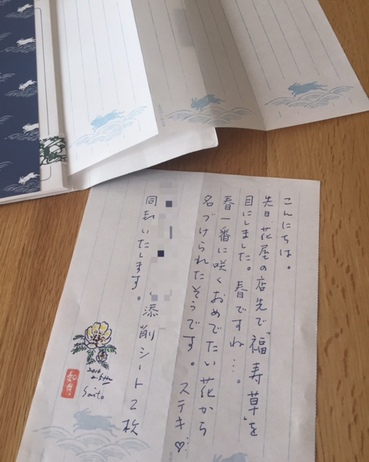 こんにちは。
先日花屋の店先で「福寿草」を
目にしました。春ですね…。
春一番に咲くおめでたい花から
名づけられたそうです。ステキ♡
添削シート2枚
同封いたします。
Saito